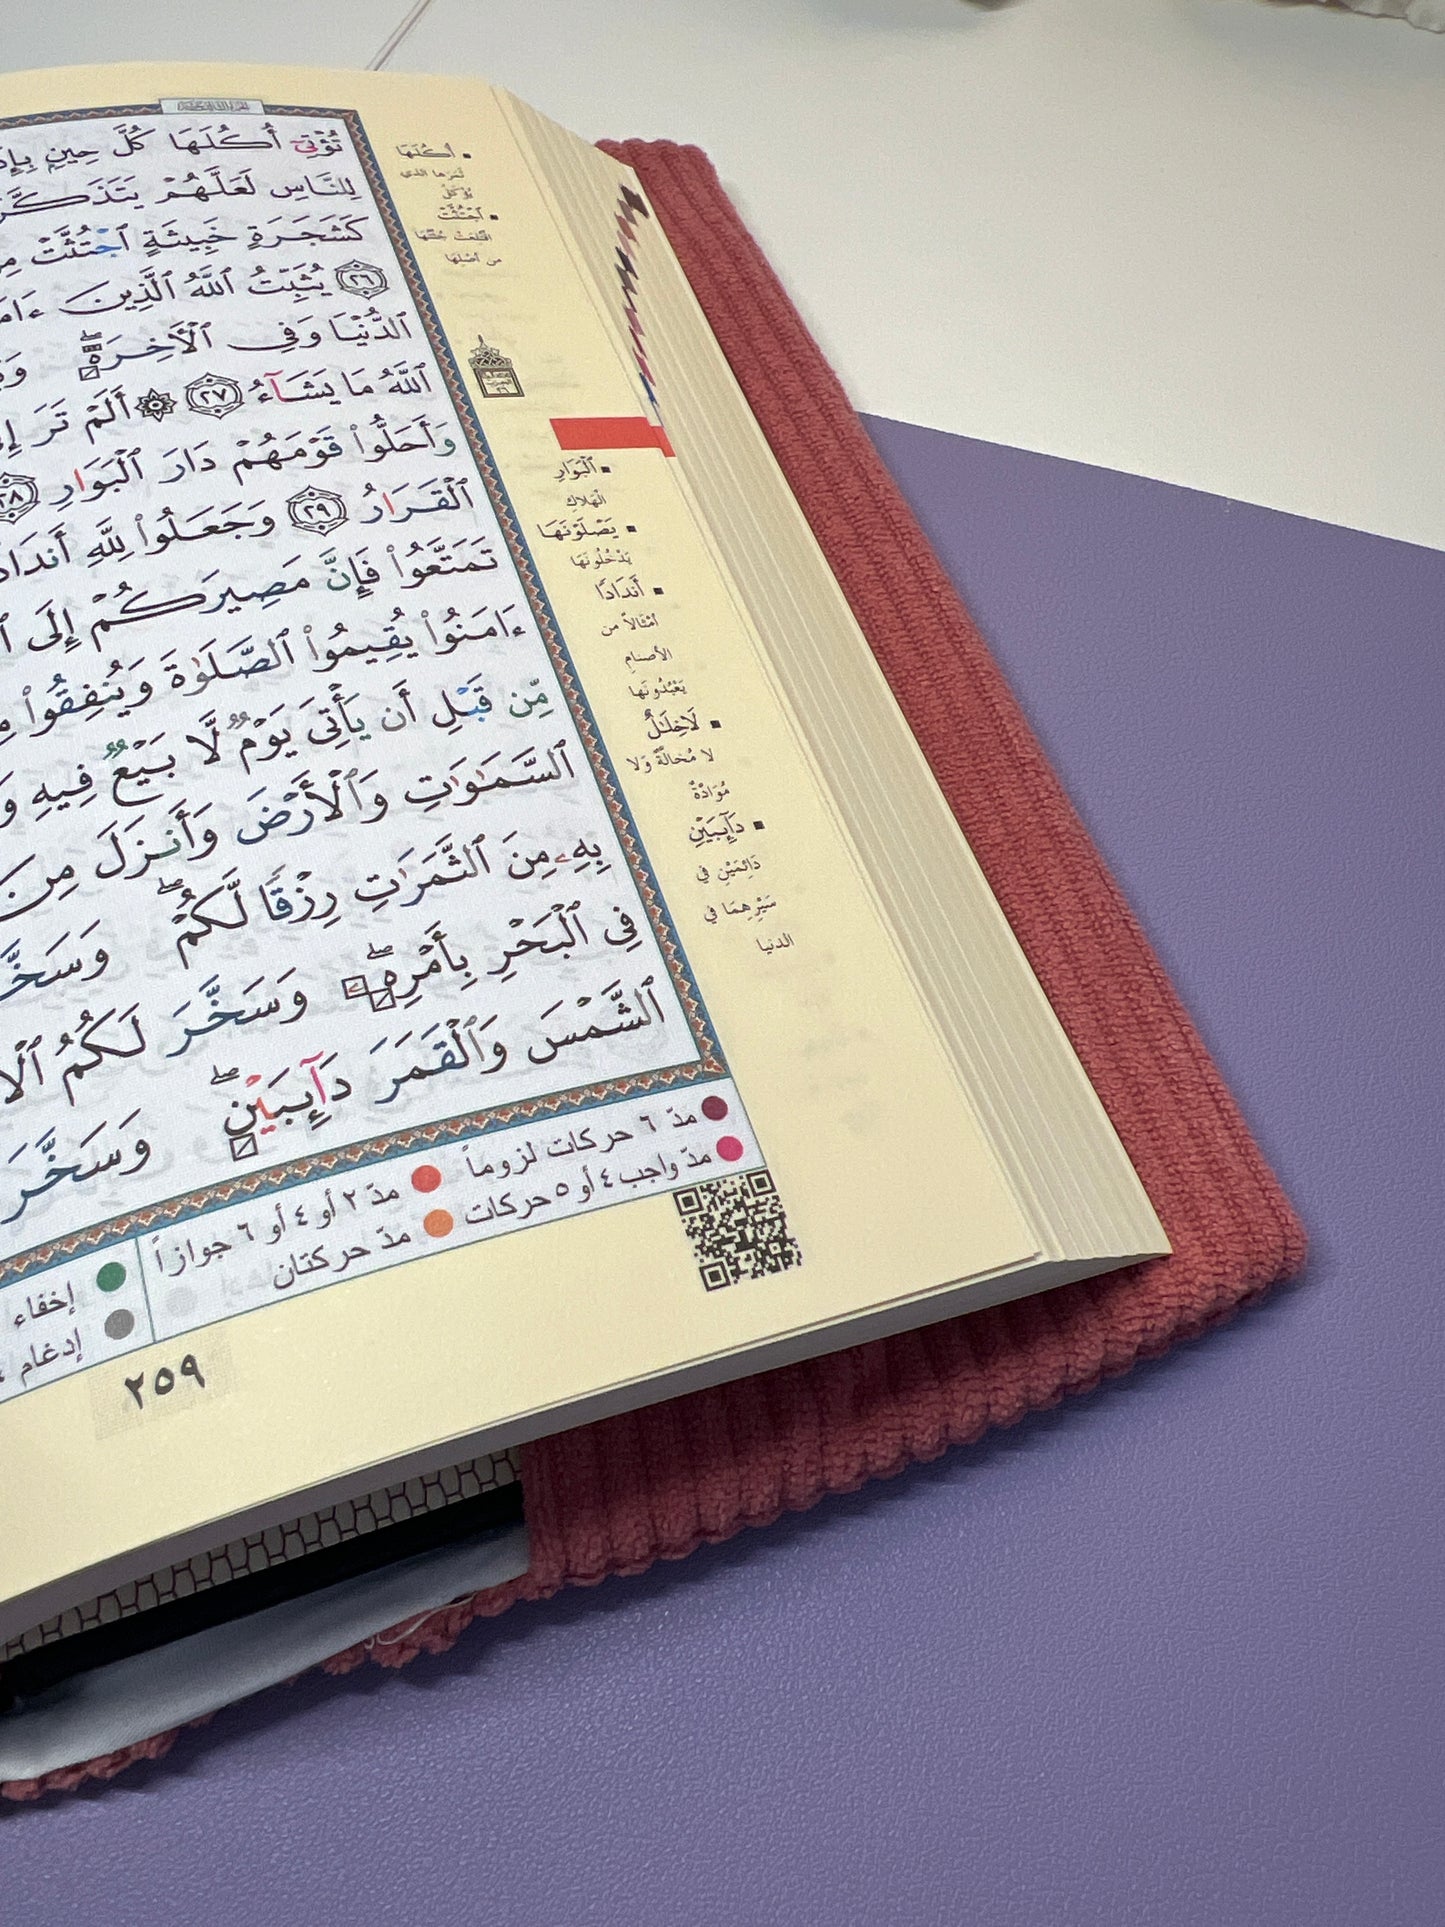 تُؤْتِىٓ أُكُلَهَا كُلَّ حِينٍۭ
لِلنَّاسِ لَعَلَّهُمْ
كَشَجَرَةٍ خَبِيثَةٍ ٱجْتُثَّتْ
٢٦ يُثَبِّتُ ٱللَّهُ ٱلَّذِينَ
ٱلدُّنْيَا وَفِى ٱلْأَخِرَةِۖ
ٱللَّهُ مَا يَشَآءُ ٢٧ ۞ أَلَمْ تَرَ
وَأَحَلُّوا۟ قَوْمَهُمْ دَارَ ٱلْبَوَارِ ٢٨
ٱلْقَرَارُ ٢٩ وَجَعَلُوا۟ لِلَّهِ
تَمَتَّعُوا۟ فَإِنَّ مَصِيرَكُمْ إِلَى
ءَامَنُوا۟ يُقِيمُوا۟ ٱلصَّلَوٰةَ وَيُنفِقُوا۟
مِّن قَبْلِ أَن يَأْتِىَ يَوْمٌ لَّا بَيْعٌ فِيهِ
ٱلسَّمَـٰوَٰتِ وَٱلْأَرْضَ وَأَنزَلَ مِنَ
بِهِۦ مِنَ ٱلثَّمَرَٰتِ رِزْقًا لَّكُمْۖ
فِى ٱلْبَحْرِ بِأَمْرِهِۦۖ وَسَخَّرَ لَكُمُ
ٱلشَّمْسَ وَٱلْقَمَرَ دَآئِبَيْنِۖ وَسَخَّرَ
▪ أُكُلَهَا
ثمرها الذي
يُؤكَلُ
▪ ٱجْتُثَّتْ
اقتُلِعَتْ جُثَّتُها
من أصْلِها
▪ ٱلْبَوَارِ
الهَلاكِ
▪ يَصْلَوْنَهَا
يَدْخُلُونَها
▪ أَندَادًا
أمْثَالاً من
الأصنامِ
يَعْبُدُونَها
▪ لَاخِلَـٰلٌ
لا مُخالَّةٌ ولا
مُوَادَّةٌ
▪ دَآئِبَيْنِ
دَائِمَيْنِ في
سَيْرِهِمَا في
الدنيا
مدّ ٦ حركات لزوماً
مدّ واجب ٤ أو ٥ حركات
مدّ ٢ أو ٤ أو ٦ جوازاً
مدّ حركتان
إخفاء
إدغام
٢٥٩